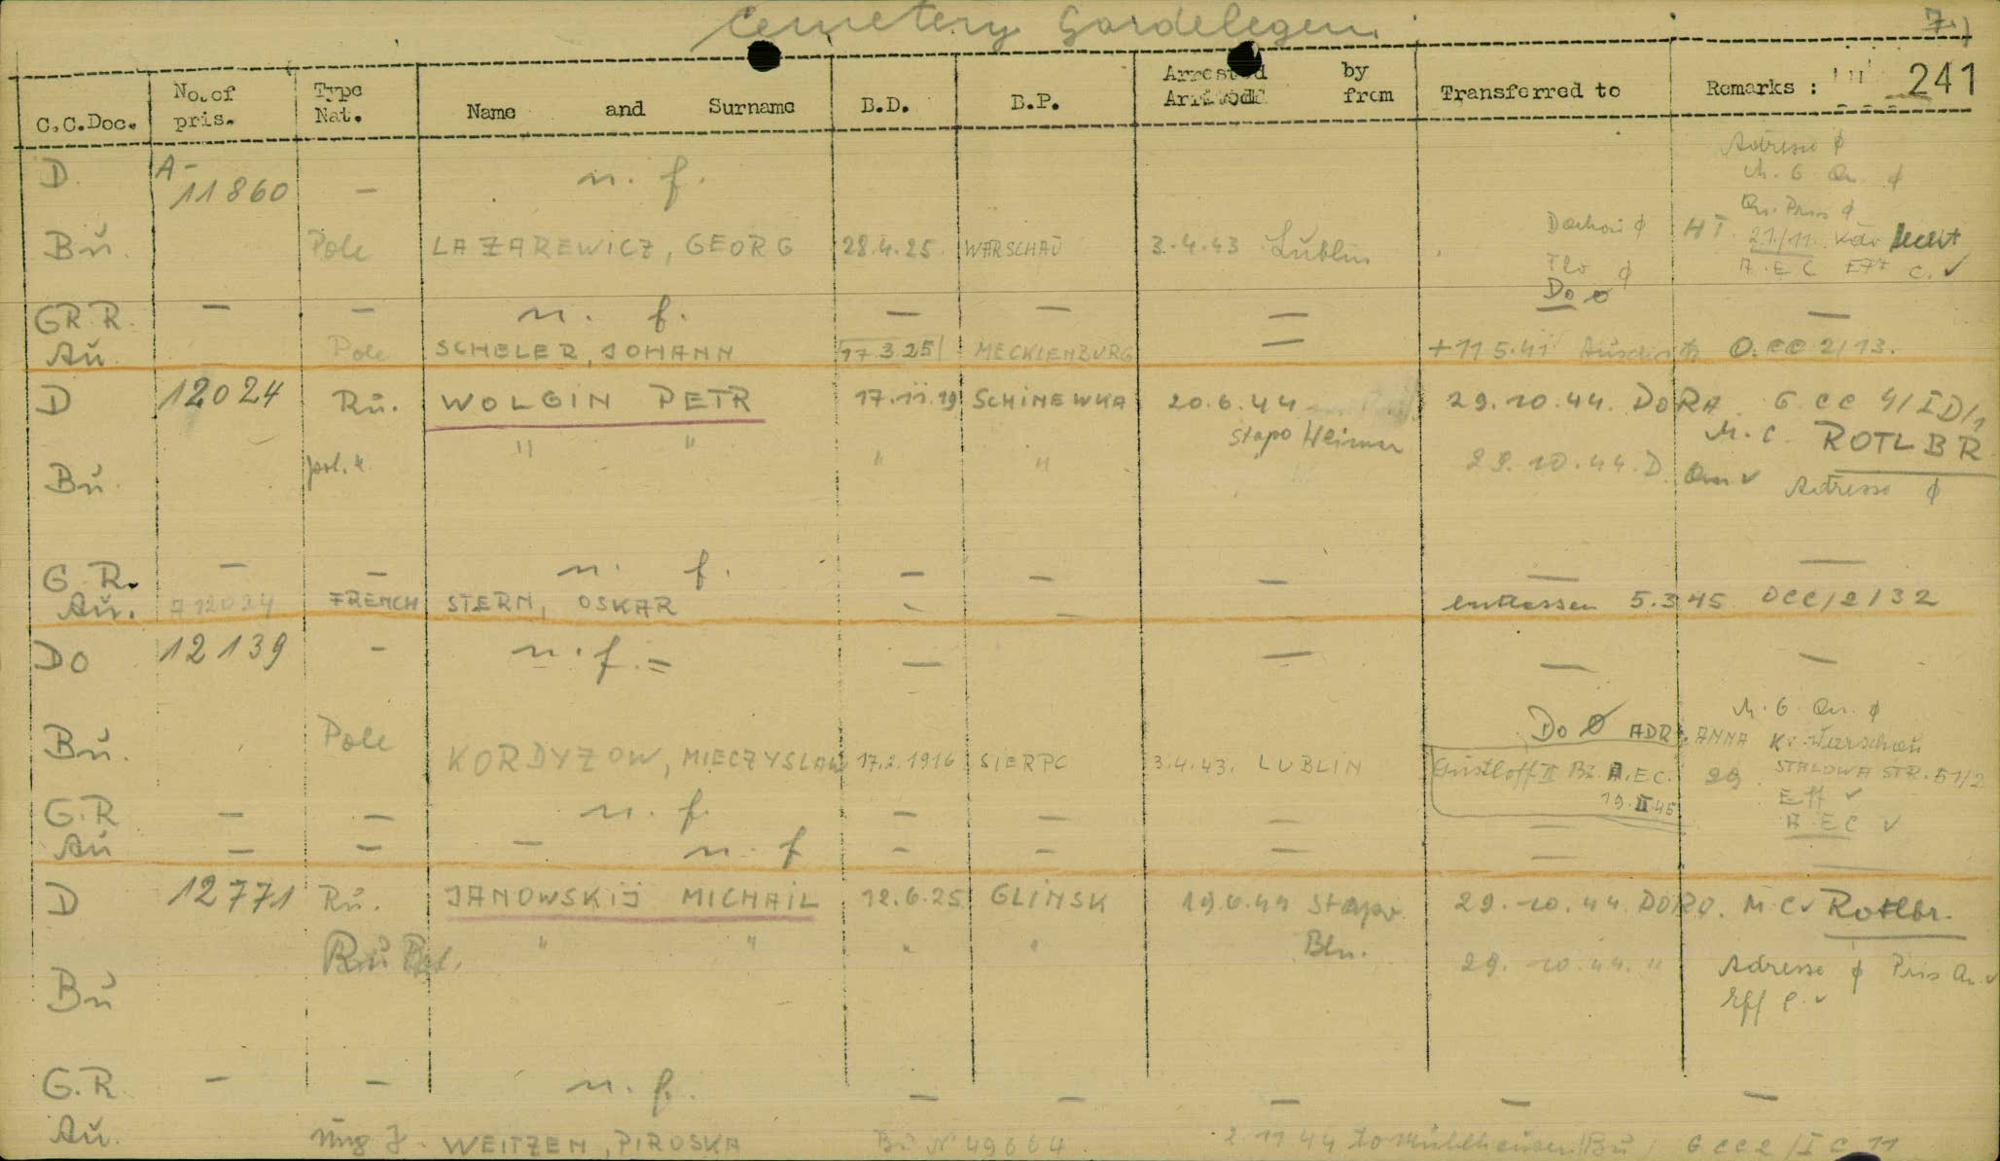 Cemetery Gardelegen 7.)
C.C.Doc. No. of pris. Type Nat. Name and Surname B.D. B.P. Arrested by Arrived from Transferred to Remarks : 241
D. A-11860 — n. f. Adresse ϕ
M. G. Qu. ϕ
Bü. Pole LAZAREWICZ, GEORG 28.4.25 WARSCHAU 3.4.43 Lublin Dachau ϕ HT
Do ø
GR R. — — n. f. — — — —
Aü. Pole SCHELER, JOHANN 17 3 25 MECKLENBURG — + 11 5.41 O.CC 2/13.
D 12024 Rü. WOLGIN PETR 17.11.19 SCHINEWKA 20.6.44 29.10.44. DORA G CC 4/ID/1
Stapo Weimar M. C. ROTLBR
Bü. pol. " " " " " 29.10.44. D. Qu ✓ Adresse ϕ
G. R. — — n. f. — — — — —
Aü. A 12024 FRENCH STERN, OSKAR — — entlassen 5.3 45 OCC/2/32
Do 12139 - n. f. = — — — —
M. G. Qu. ϕ
Bü. Pole KORDYZOW, MIECZYSLAW 17.2.1916 SIERPC 3.4.43. LUBLIN Do Ø ADR. ANNA K. Warschau
Gustloff II Bü A.E.C. 29 STALOWA STR. 51/2
19. II 45 Eff ✓
A E C ✓
G.R — — n. f. — — —
Aü — — — n. f — — — — —
D 12771 Rü. JANOWSKIJ MICHAIL 12.6.25 GLINSK 19.6.44 Stapo 29.10.44. DORO. M.C ✓ Rotlbr.
Bü Rü Pol. " " " " Bln. 29. 10.44. " Adresse ϕ Pris Qu. ✓
Eff C. ✓
G.R — — n. f. — — — — —
Aü. Ung J. WEITZEN, PIROSKA Bü № 49664 2 11 44 to Mühlhausen/Bü/ G CC2 /I C 11